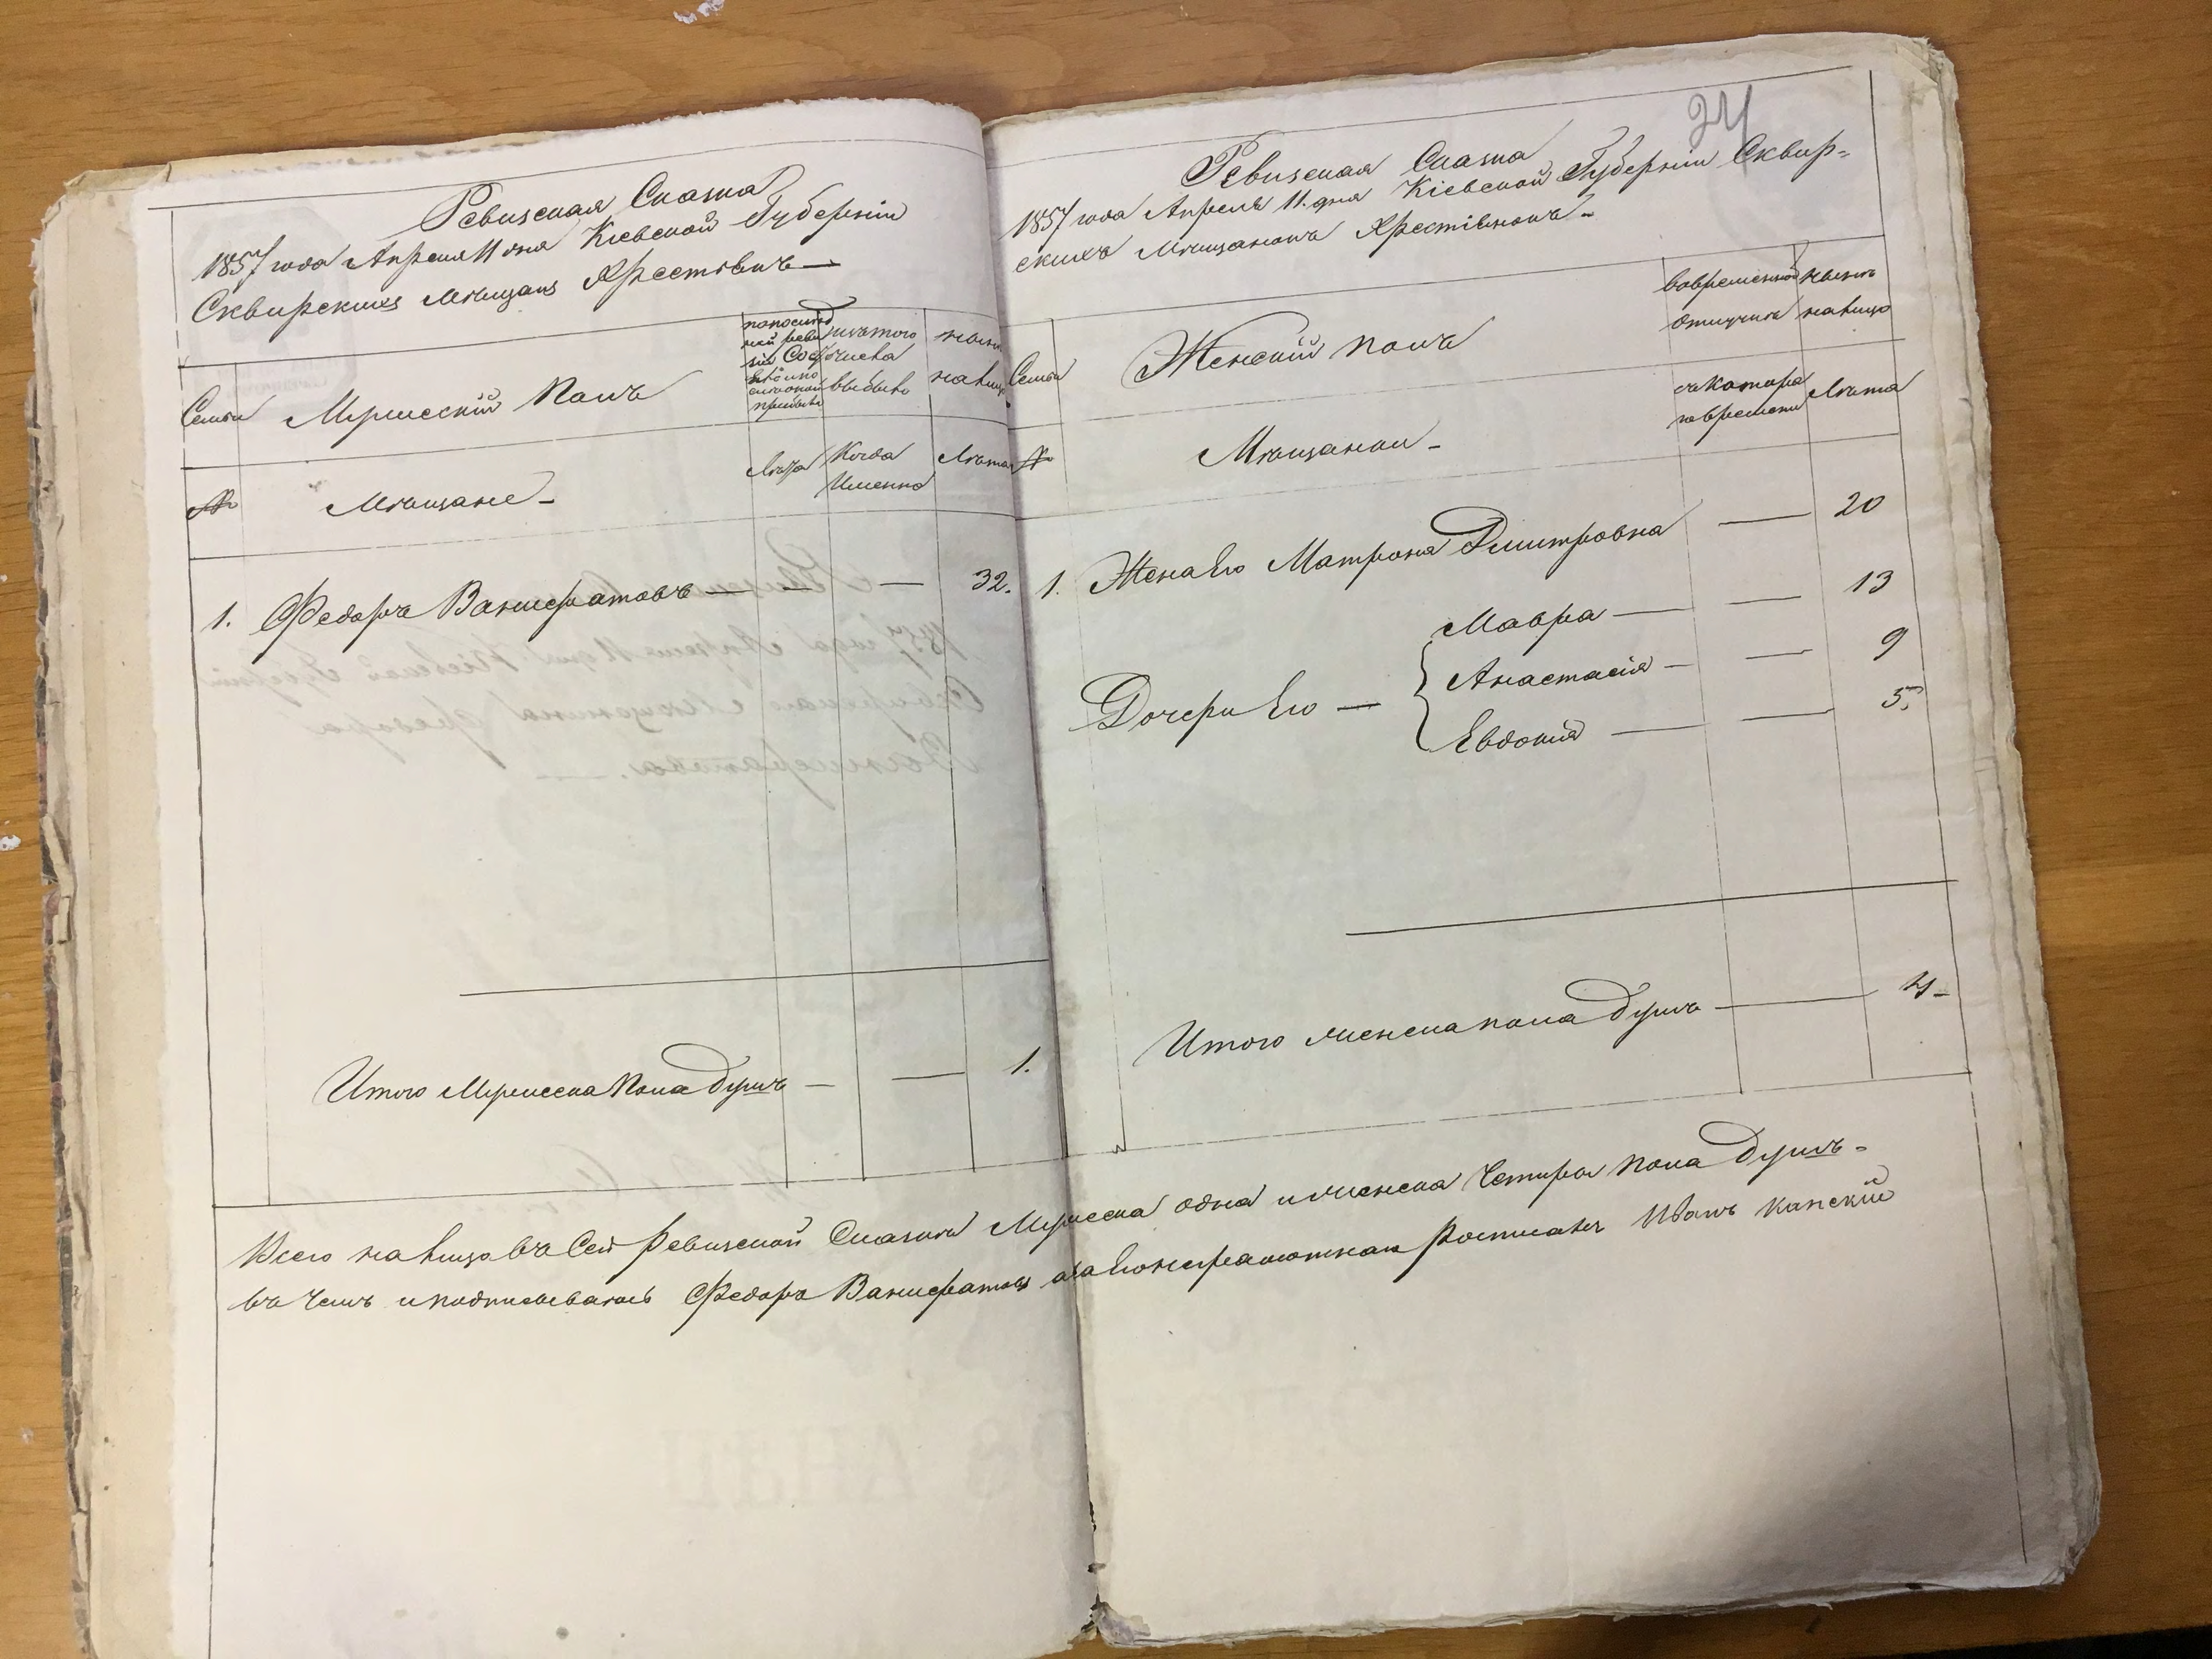 Ревизская Сказка
1857 года Апреля 11 дня Кіевской Губерніи
Сквирскихъ Мѣщанъ Хрестіянъ —
Семьи
Мужескій Полъ
изъ того
числа
выбыло
нынѣ
на лицо
№
Мѣщане –
Лѣта
Когда
Именно
Лѣта
1. Федоръ Ванифатовъ — — — 32.
Итого Мужеска Пола Душъ — — 1.
24
Ревизская Сказка
1857 года Апреля 11. дня Кіевской Губерніи Сквир=
скихъ Мѣщанокъ Хрестіянокъ –
Семьи
Женскій полъ
во временной
отлучкѣ
нынѣ
на лицо
№
Мѣщанки –
съ котора
го времени
Лѣта
1. Жена Его Матрона Дмитровна — 20
Дочери Его —
Мавра — — 13
Анастасія — — 9
Евдокія — — 5.
Итого женска пола Душъ — 4 –
Всего на лицо въ Сей Ревизской Сказкѣ Мужеска одна и женска Четыре пола Душъ =
въ чемъ и подписываюсь Федоръ Ванифатовъ а за Его неграмотнаго Росписался Иванъ